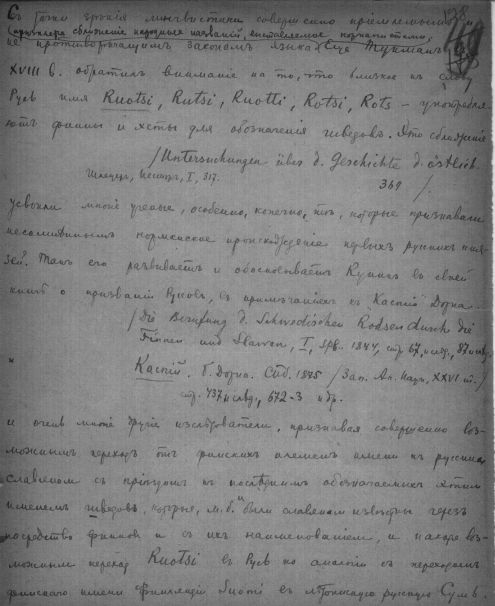 Съ точки зрѣнія лингвистики совершенно пріемлемымъ и
сближеніе народныхъ названій,
не противорѣчащимъ законамъ языка. Еще Тунманъ въ
XVIII в. обратилъ вниманіе на то, что близкое къ слову
Русь имя Ruotsi, Rutsi, Ruotti, Rotsi, Rots – употребля
ютъ финны и эсты для обозначенія шведовъ. Это сближеніе
/Untersuchungen über d. Geschichte d. östlich.
Шлецеръ, Несторъ, I, 317. 369 /.
усвоили многіе ученые, особенно, конечно, тѣ, которые признавали
несомнѣннымъ норманское происхожденіе первыхъ русскихъ кня-
зей. Такъ его развиваетъ и обосновываетъ Куникъ въ своей
книгѣ о призваніи Руссовъ, въ примѣчаніяхъ къ Каспію Дорна.
/Die Berufung d. Schwedischen Rodsen durch die
Finnen und Slawen, I, Spb. 1844, стр. 67 и слѣд., 87 и слѣд.
" Каспій. Б. Дорна. Спб. 1875 / Зап. Ак. Наукъ, XXVI т. /
стр. 437 и слѣд., 672-3 и др.
и очень многіе другіе изслѣдователи, признавая совершенно воз-
можнымъ переходъ отъ финскихъ племенъ имени къ русскимъ
славянамъ съ къ послѣднимъ обозначаемыхъ этимъ
именемъ шведовъ, которые, м. б. и были славянамъ извѣстны черезъ
посредство финновъ и съ ихъ наименованіемъ, и находя воз-
можнымъ переходъ Ruotsi въ Русь по аналогіи съ переходомъ
финскаго имени Финляндіи Suomi въ лѣтописную русскую Сумь.